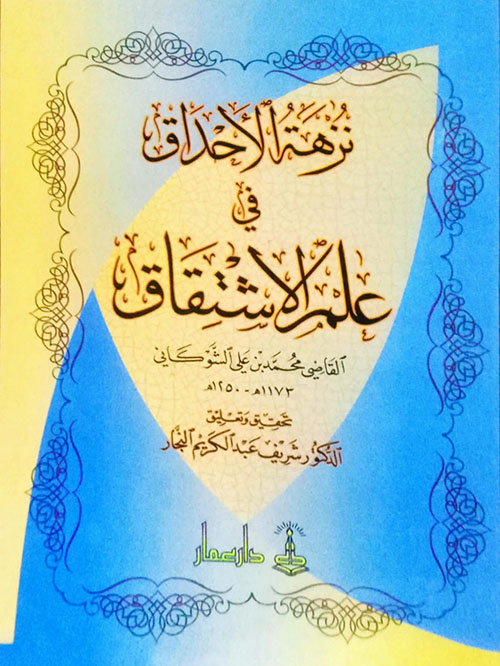 نُزهَةُ الأَحدَاق
في
عِلمِ الاشْتِقَاق
القاضي محمد بن علي الشوكاني
١١٧٣هـ - ١٢٥٠هـ
تحقيق وتعليق
الدكتور شريف عبد الكريم النجار
دار عمار